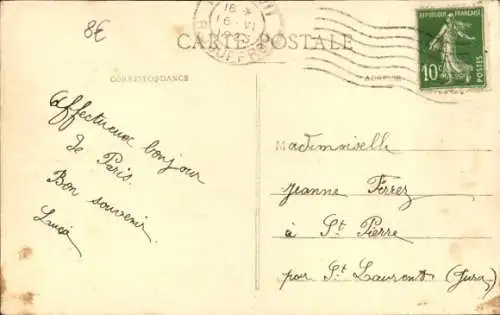 8€
CARTE POSTALE
RÉPUBLIQUE FRANÇAISE
10c
POSTES
CORRESPONDANCE
ADRESSE
Affectueux bonjour
de Paris.
Bon souvenir
Mademoiselle
Jeanne Ferrez
à St Pierre
par St Laurent (Jura)